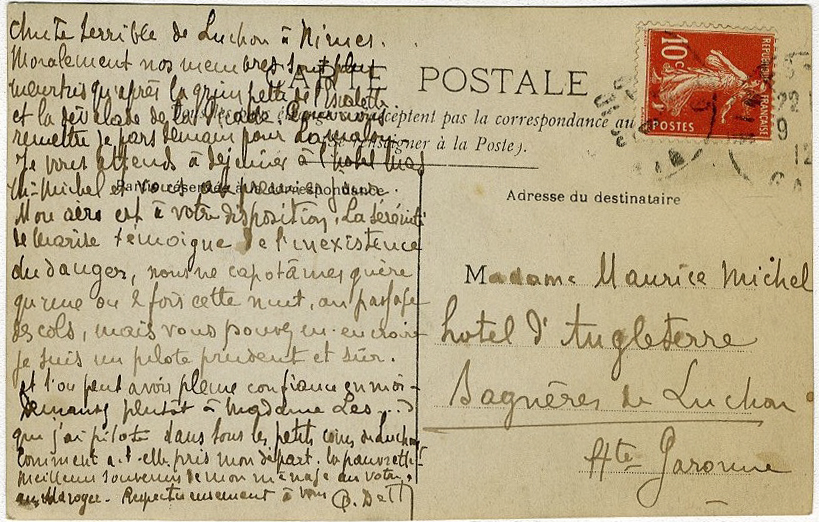 Chute terrible de Luchon à Nimes.
Moralement nos membres sont plus
meurtris qu'après la grimpette de l'
et la de la
remettre je pars demain pour
Je vous attends à déjeuner à l'hotel
Mr Michel et vous
Mon aéro est à votre disposition. La sérénité
de témoigne de l'inexistence
du danger, nous ne capotâmes guère
qu'une ou 2 fois cette nuit, au passage
des cols, mais vous pouvez m'en croire
je suis un pilote prudent et sûr.
et l'on peut avoir pleine confiance en moi -
Demandez plutôt à Madame Les...
que j'ai pilotée dans tous les petits coins de Luchon
Comment a-t-elle pris mon départ. la pauvrette!
Meilleurs souvenirs de mon ménage au votre
Respectueusement à vous
CARTE POSTALE
acceptent pas la correspondance au
se renseigner à la Poste).
Partie réservée à la correspondance
10c
REPUBLIQUE FRANÇAISE
POSTES
22
9
12
Adresse du destinataire
Madame Maurice Michel
hotel d'Angleterre
Bagnères de Luchon
Hte Garonne